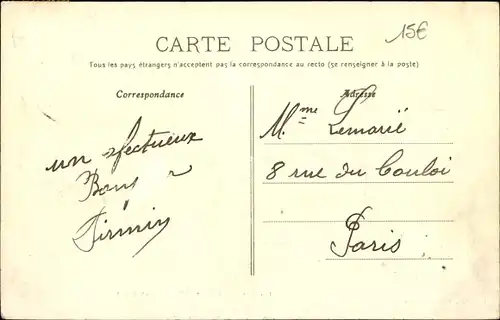 15€
CARTE POSTALE
Tous les pays étrangers n'acceptent pas la correspondance au recto (se renseigner à la poste)
Correspondance
Adresse
un afectueux
Firmin
Mme Lemarié
8 rue du Couloi
Paris